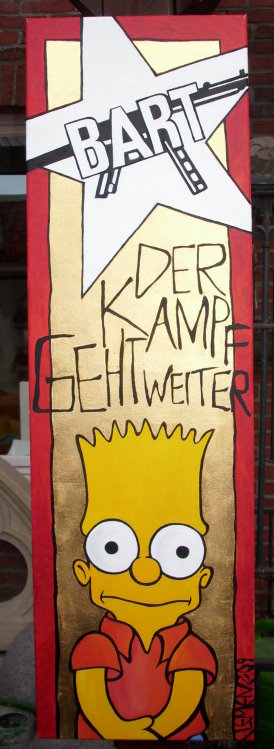 BART
DER
KAMPF
GEHT WEITER